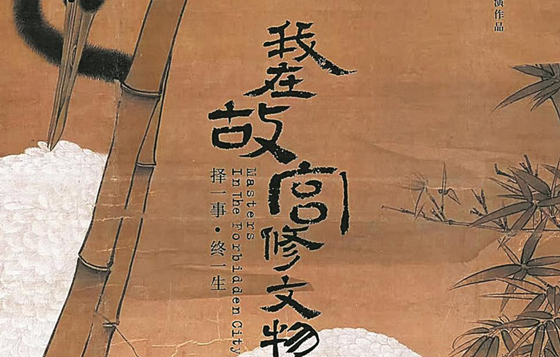 演作品
我在故宫修文物
Masters
In The Forbidden City
择一事·终一生